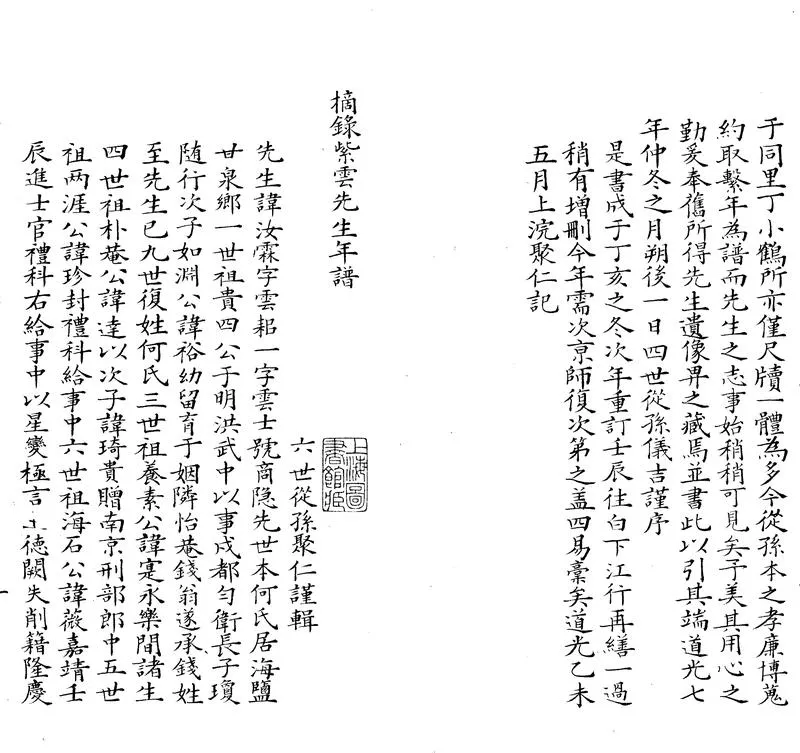 于同里丁小鶴所亦僅尺牘一體為多今從孫本之孝廉博蒐
約取繫年為譜而先生之志事始稍稍可見矣予美其用心之
勤爰奉舊所得先生遺像畀之藏焉並書此以引其端道光七
年仲冬之月朔後一日四世從孫儀吉謹序
是書成于丁亥之冬次年重訂壬辰往白下江行再繕一過
稍有增刪今年需次京師復次第之盖四易藁矣道光乙未
五月上浣聚仁記
摘錄紫雲先生年譜
上海圖書館藏
六世從孫聚仁謹輯
先生諱汝霖字雲耜一字雲士號商隐先世本何氏居海鹽
甘泉鄉一世祖貴四公于明洪武中以事戍都勻衛長子瓊
随行次子如淵公諱裕幼留育于姻隣怡菴錢翁遂承錢姓
至先生已九世復姓何氏三世祖養素公諱寔永樂間諸生
四世祖朴菴公諱達以次子諱琦貴贈南京刑部郎中五世
祖两涯公諱珍封禮科給事中六世祖海石公諱薇嘉靖壬
辰進士官禮科右給事中以星變極言上德闕失削籍隆慶